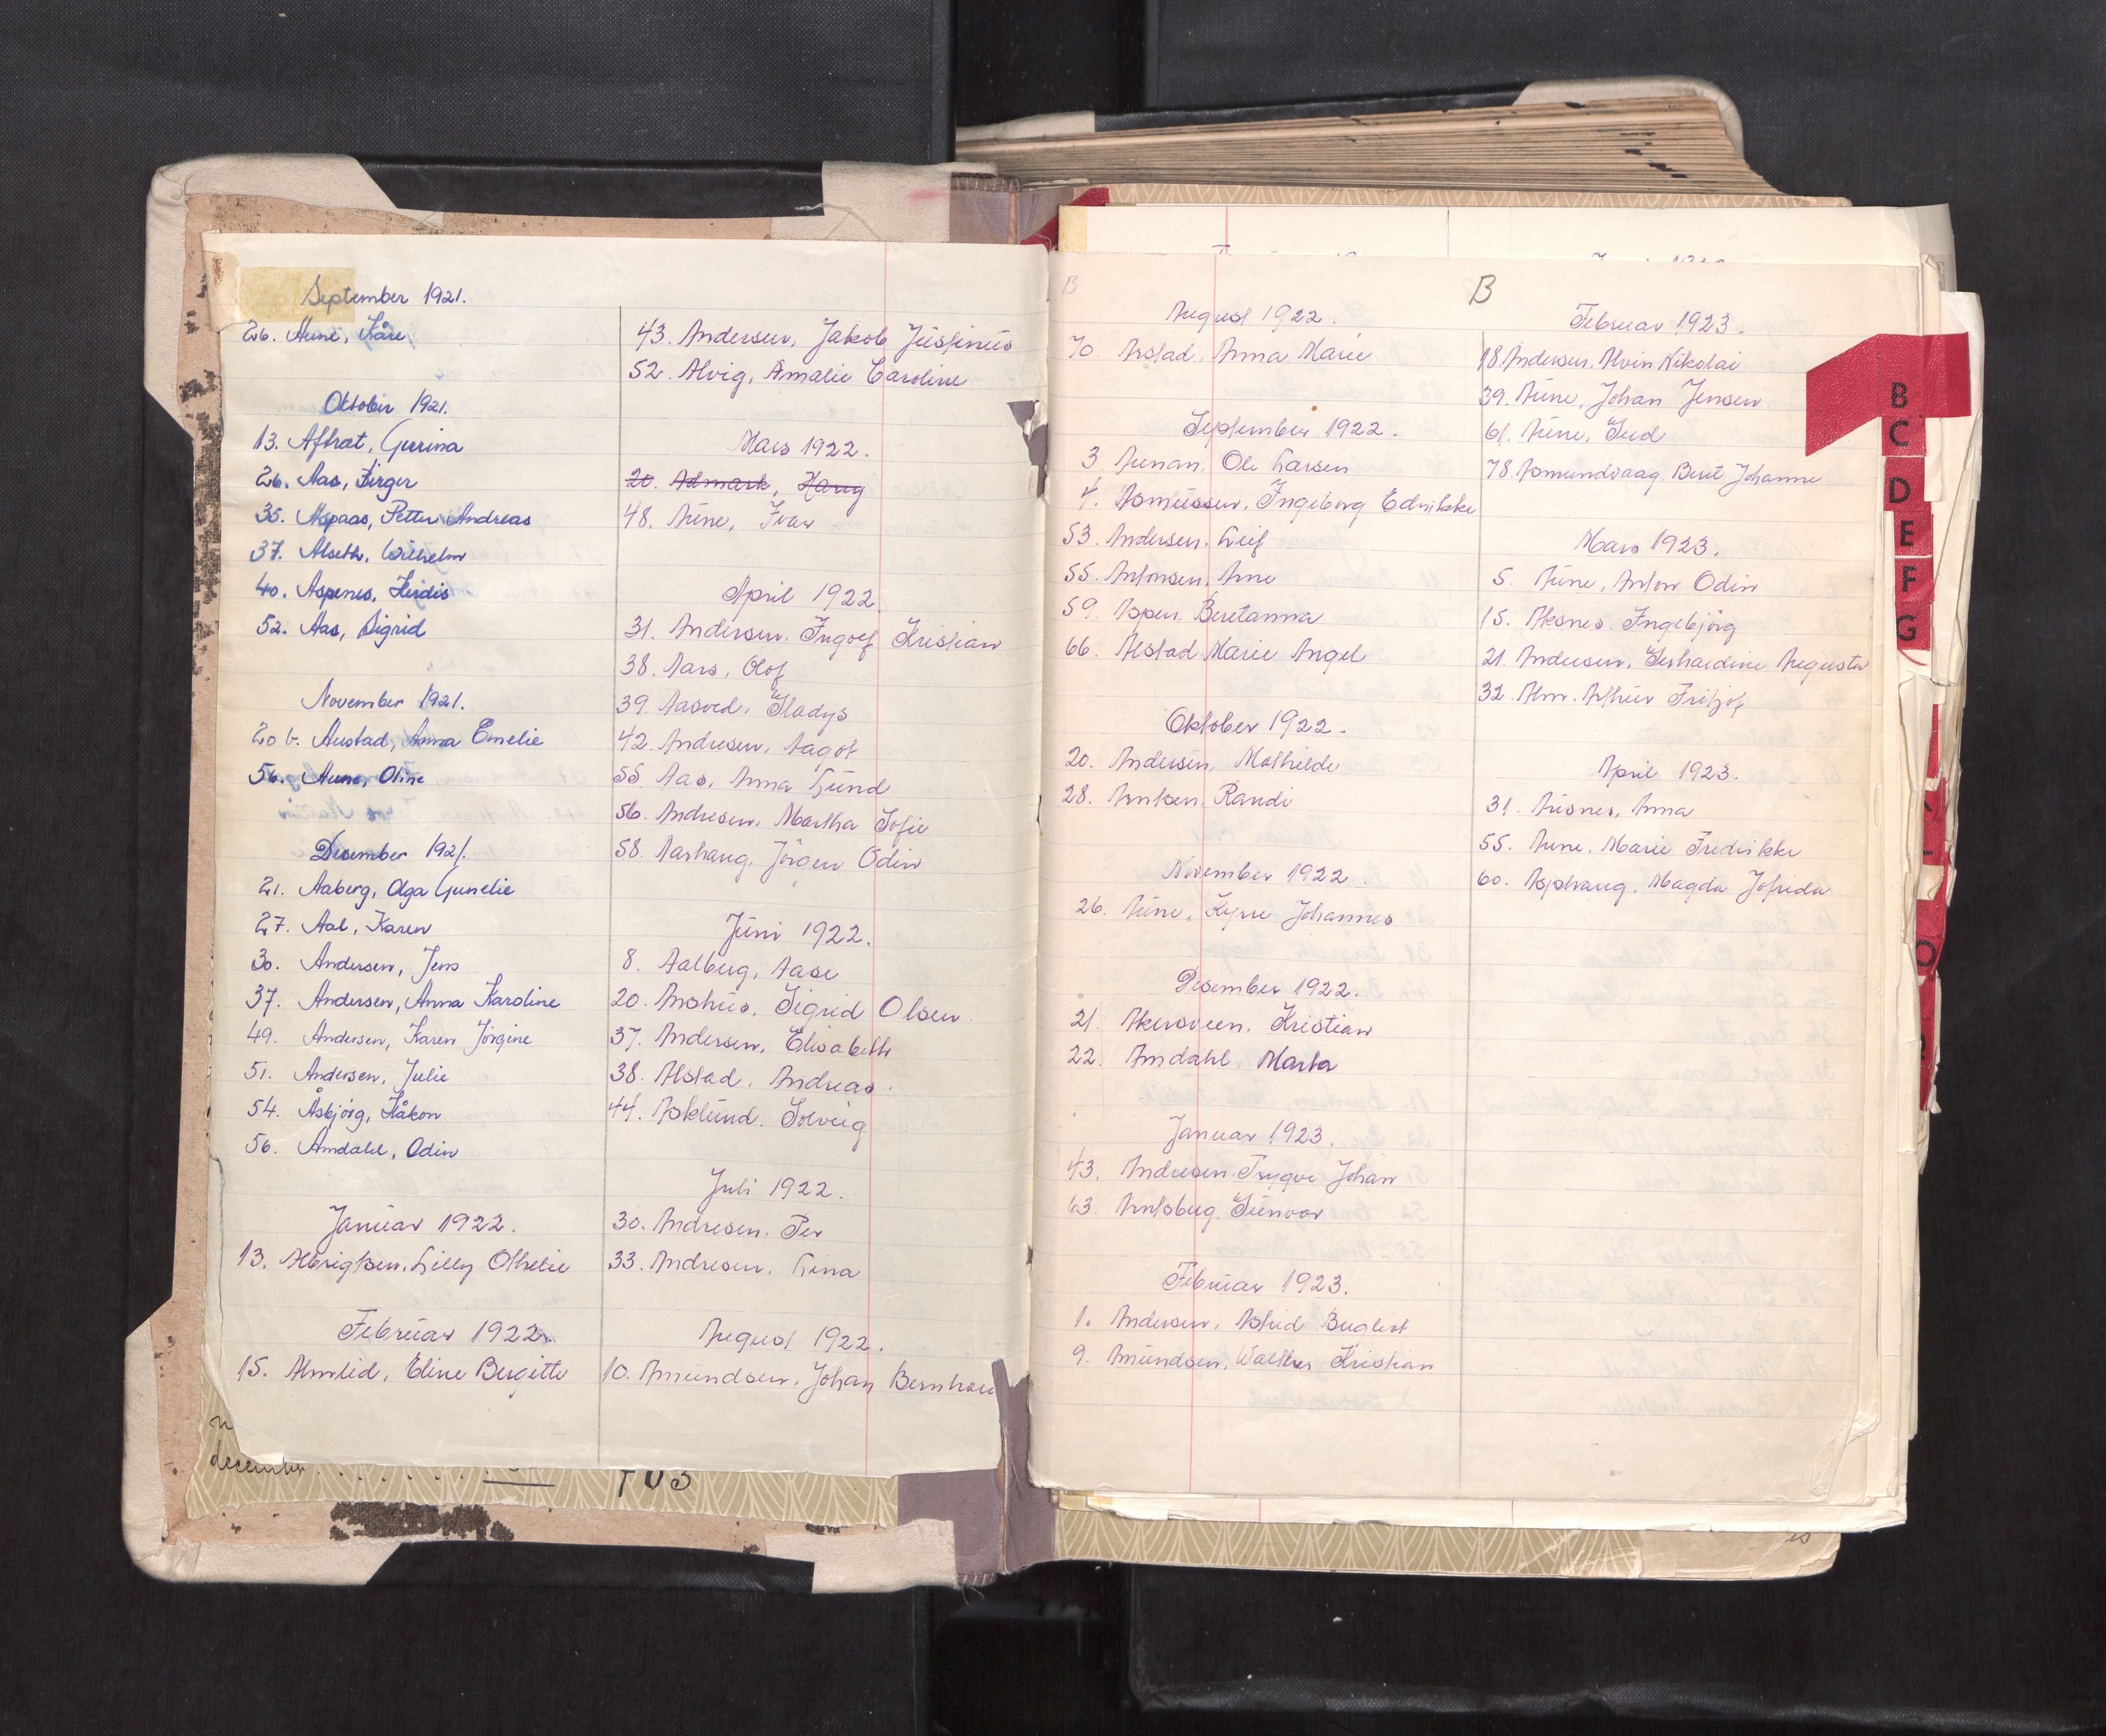 September 1921.
26. Aune, Kåre
Oktober 1921.
13. Aftret, Gurina
26. Aas, Birger
35. Aspaas, Petter Andreas
37. Alseth, Wilhelm
40. Aspenes, Herdis
52. Aas, Sigrid
November 1921.
20 b. Austad, Anna Emelie
56. Aune, Oline
Desember 1921.
21. Aaberg, Olga Gunelie
27. Aal, Karen
30. Andersen, Jens
37. Andersen, Anna Karoline
49. Andersen, Karen Jörgine
51. Andersen, Julie
54. Åsbjörg, Håkon
56. Amdahl, Odin
Januar 1922.
13. Albrigtsen, Lilly Othelie
Februar 1922.
15. Almlid, Eline Bergitte
43. Andersen, Jakob Justinus
52. Alvig, Amalie Caroline
Mars 1922.
20. Admark, Harry
48. Aune, Ivar
April 1922.
31. Andersen, Ingolf Kristian
38. Aars, Olof
39. Aasved, Gladys
42. Andresen, Aagot
55. Aas, Anna Lund
56. Andresen, Martha Sofie
58. Aarhaug, Jörgen Odin
Juni 1922.
8. Aalberg, Aase
20. Aushus, Sigrid Olsen
37. Andersen, Elisabeth
38. Alstad, Andreas.
44. Asklund, Solveig
Juli 1922.
30. Andresen, Per
33. Andresen, Lina
August 1922.
10. Amundsen, Johan
B
B
August 1922.
70. Arstad, Anna Marie
September 1922.
3. Aunan, Ole Larsen
4. Asmussen, Ingeborg Edrikke
53. Andersen, Leif
55. Antonsen, Arne
59. Aspen, Beretanna
66. Alstad Marie Angel
Oktober 1922.
20. Andersen, Mathilde
28. Arntsen, Randi
November 1922.
26. Aune, Kyrre Johannes
Desember 1922.
21. Akersveen, Kristian
22. Amdahl, Marta
Januar 1923.
43. Andresen, Trygve Johan
63. Arntsberg, Gunvor
Februar 1923.
1. Andersen, Astrid Buglest
9. Amundsen, Walther Kristian
Februar 1923.
18. Andersen, Alvin Nikolai
39. Aune, Johan Jensen
61. Aune, Gerd
78. Asmundvaag Beret Johanne
Mars 1923.
5. Aune, Anton Odin
15. Aksnes, Ingebjörg
21. Andersen, Gerhardine Augusta
32. Alm, Arthur Fritjof
April 1923.
31. Ausnes, Anna
55. Aune, Marie Fredrikke
60. Asphaug, Magda Jofrida
B
C
D
E
F
G
december
703